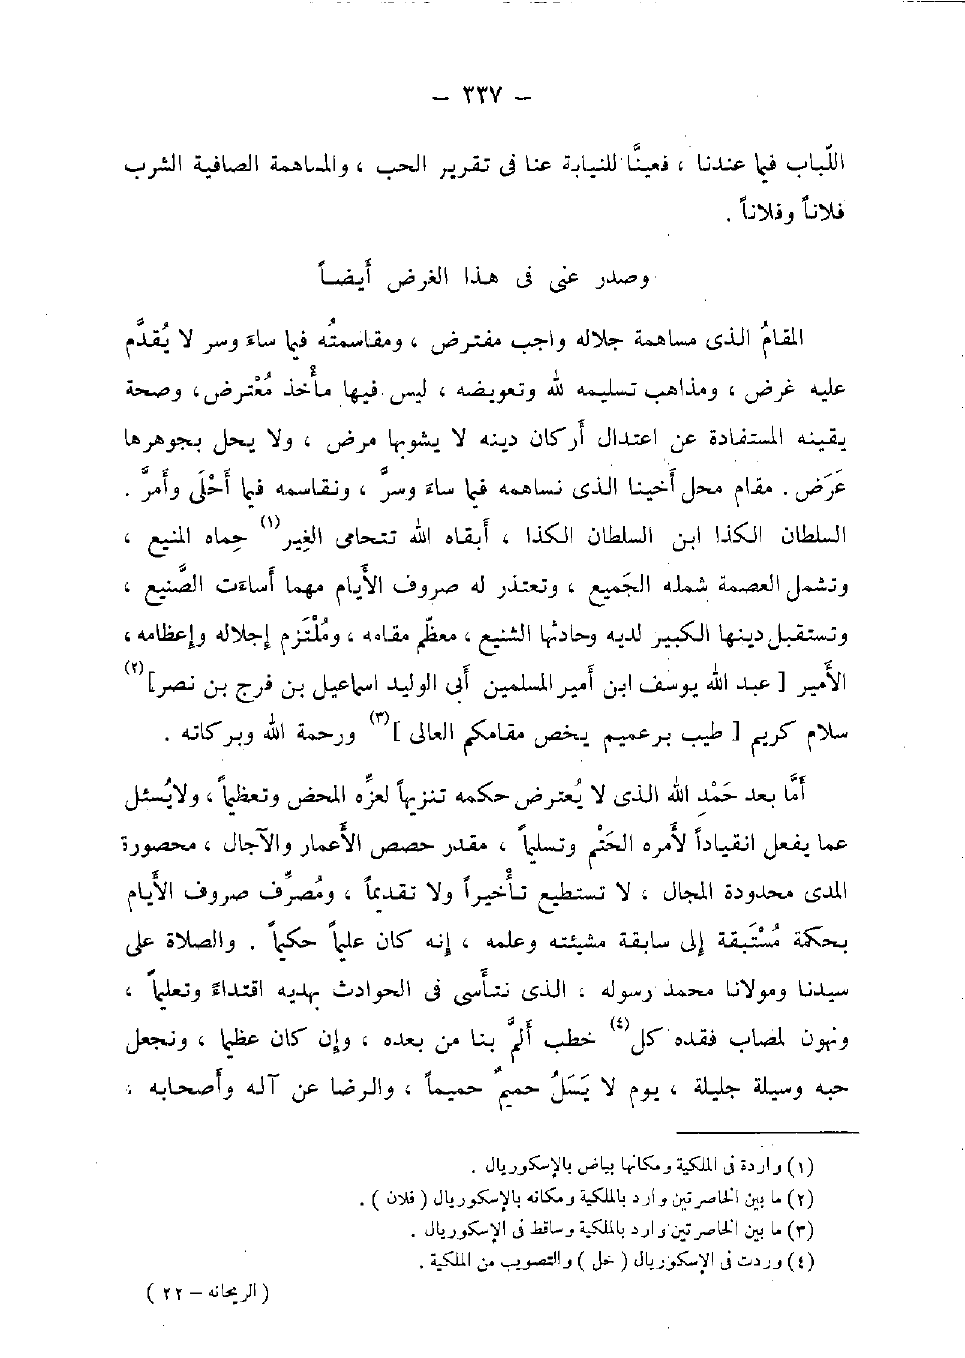 — ٣٣٧ —
اللّباب فيما عندنا ، فعينَّا للنيابة عنا فى تقرير الحب ، والمساهمة الصافية الشرب
فلاناً وفلاناً .
وصدر عنى فى هذا الغرض أيضاً
المقامُ الذى مساهمة جلاله واجب مفترض ، ومقاسمتُه فيما ساء وسر لا يُقدَّم
عليه غرض ، ومذاهب تسليمه لله وتعويضه ، ليس فيها مأخذ مُعْترض، وصحة
يقينه المستفادة عن اعتدال أركان دينه لا يشوبها مرض ، ولا يحل بجوهرها
عَرَض . مقام محل أخينا الذى نساهمه فيما ساء وسرَّ ، ونقاسمه فيما أحْلَى وأمرَّ .
السلطان الكذا ابن السلطان الكذا ، أبقاه الله تتحامى الغِير(١) حِماه المنيع ،
وتشمل العصمة شمله الجَميع ، وتعتذر له صروف الأيام مهما أساءت الصَّنيع ،
وتستقبل دينها الكبير لديه وحادثها الشنيع ، معظّم مقامه ، ومُلْتَزم إجلاله وإعظامه ،
الأمير [ عبد الله يوسف ابن أمير المسلمين أبى الوليد اسماعيل بن فرج بن نصر](٢)
سلام كريم [ طيب برعميم يخص مقامكم العالى ](٣) ورحمة الله وبركاته .
أمَّا بعد حَمْدِ الله الذى لا يُعترض حكمه تنزيهاً لعزِّه المحض وتعظيماً ، ولايُسئل
عما يفعل انقياداً لأمره الحَتْم وتسليماً ، مقدر حصص الأعمار والآجال ، محصورة
المدى محدودة المجال ، لا تستطيع تأخيراً ولا تقديماً ، ومُصرِّف صروف الأيام
بحكمة مُسْتَبقة إلى سابقة مشيئته وعلمه ، إنه كان عليماً حكيماً . والصلاة على
سيدنا ومولانا محمد رسوله ، الذى نتأسى فى الحوادث بهديه اقتداءً وتعليماً ،
ونهون لمصاب فقده كل(٤) خطب ألمَّ بنا من بعده ، وإن كان عظيما ، ونجعل
حبه وسيلة جليلة ، يوم لا يَسَلُ حميمٌ حميماً ، والرضا عن آله وأصحابه ،
(١) واردة فى الملكية ومكانها بياض بالإسكوريال .
(٢) ما بين الخاصرتين وارد بالملكية ومكانه بالإسكوريال ( فلان ) .
(٣) ما بين الخاصرتين وارد بالملكية وساقط فى الإسكوريال .
(٤) وردت فى الإسكوريال ( خل ) والتصويب من الملكية .
( الريحانه – ٢٢ )